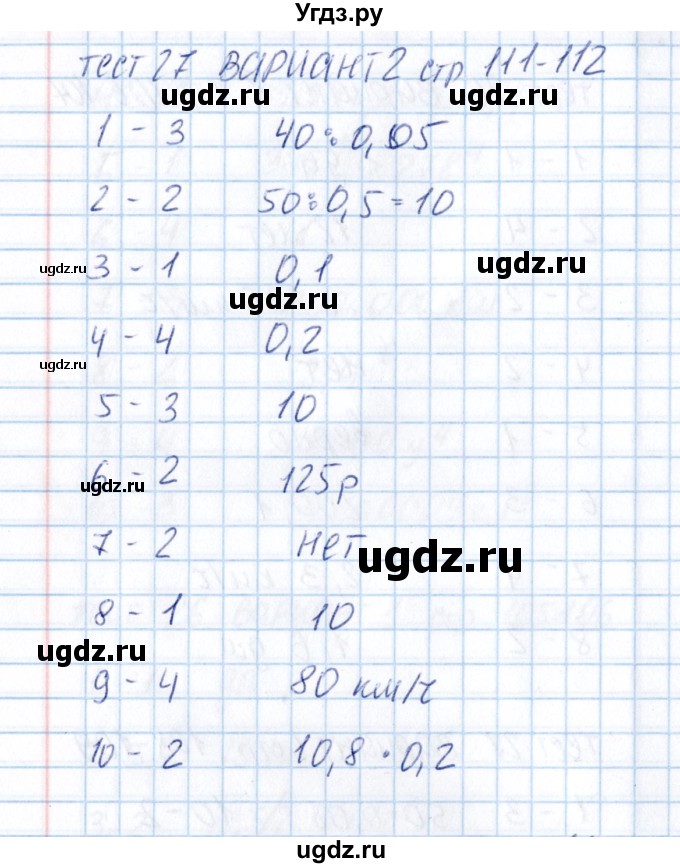 Угдз.ру
тест 27 ВАРИАНТ 2 стр 111-112
ugdz.ru ugdz.ru
1 - 3 40:0,05
2 - 2 50:0,5=10
ugdz.ru 3 - 1 0,1 ugdz.ru
ugdz.ru
4 - 4 0,2
ugdz.ru
5 - 3 10
6 - 2 125р
ugdz.ru
7 - 2 нет
ugdz.ru
8 - 1 10
ugdz.ru
9 - 4 80 км/ч
ugdz.ru
10 - 2 10,8 · 0,2
ugdz.ru